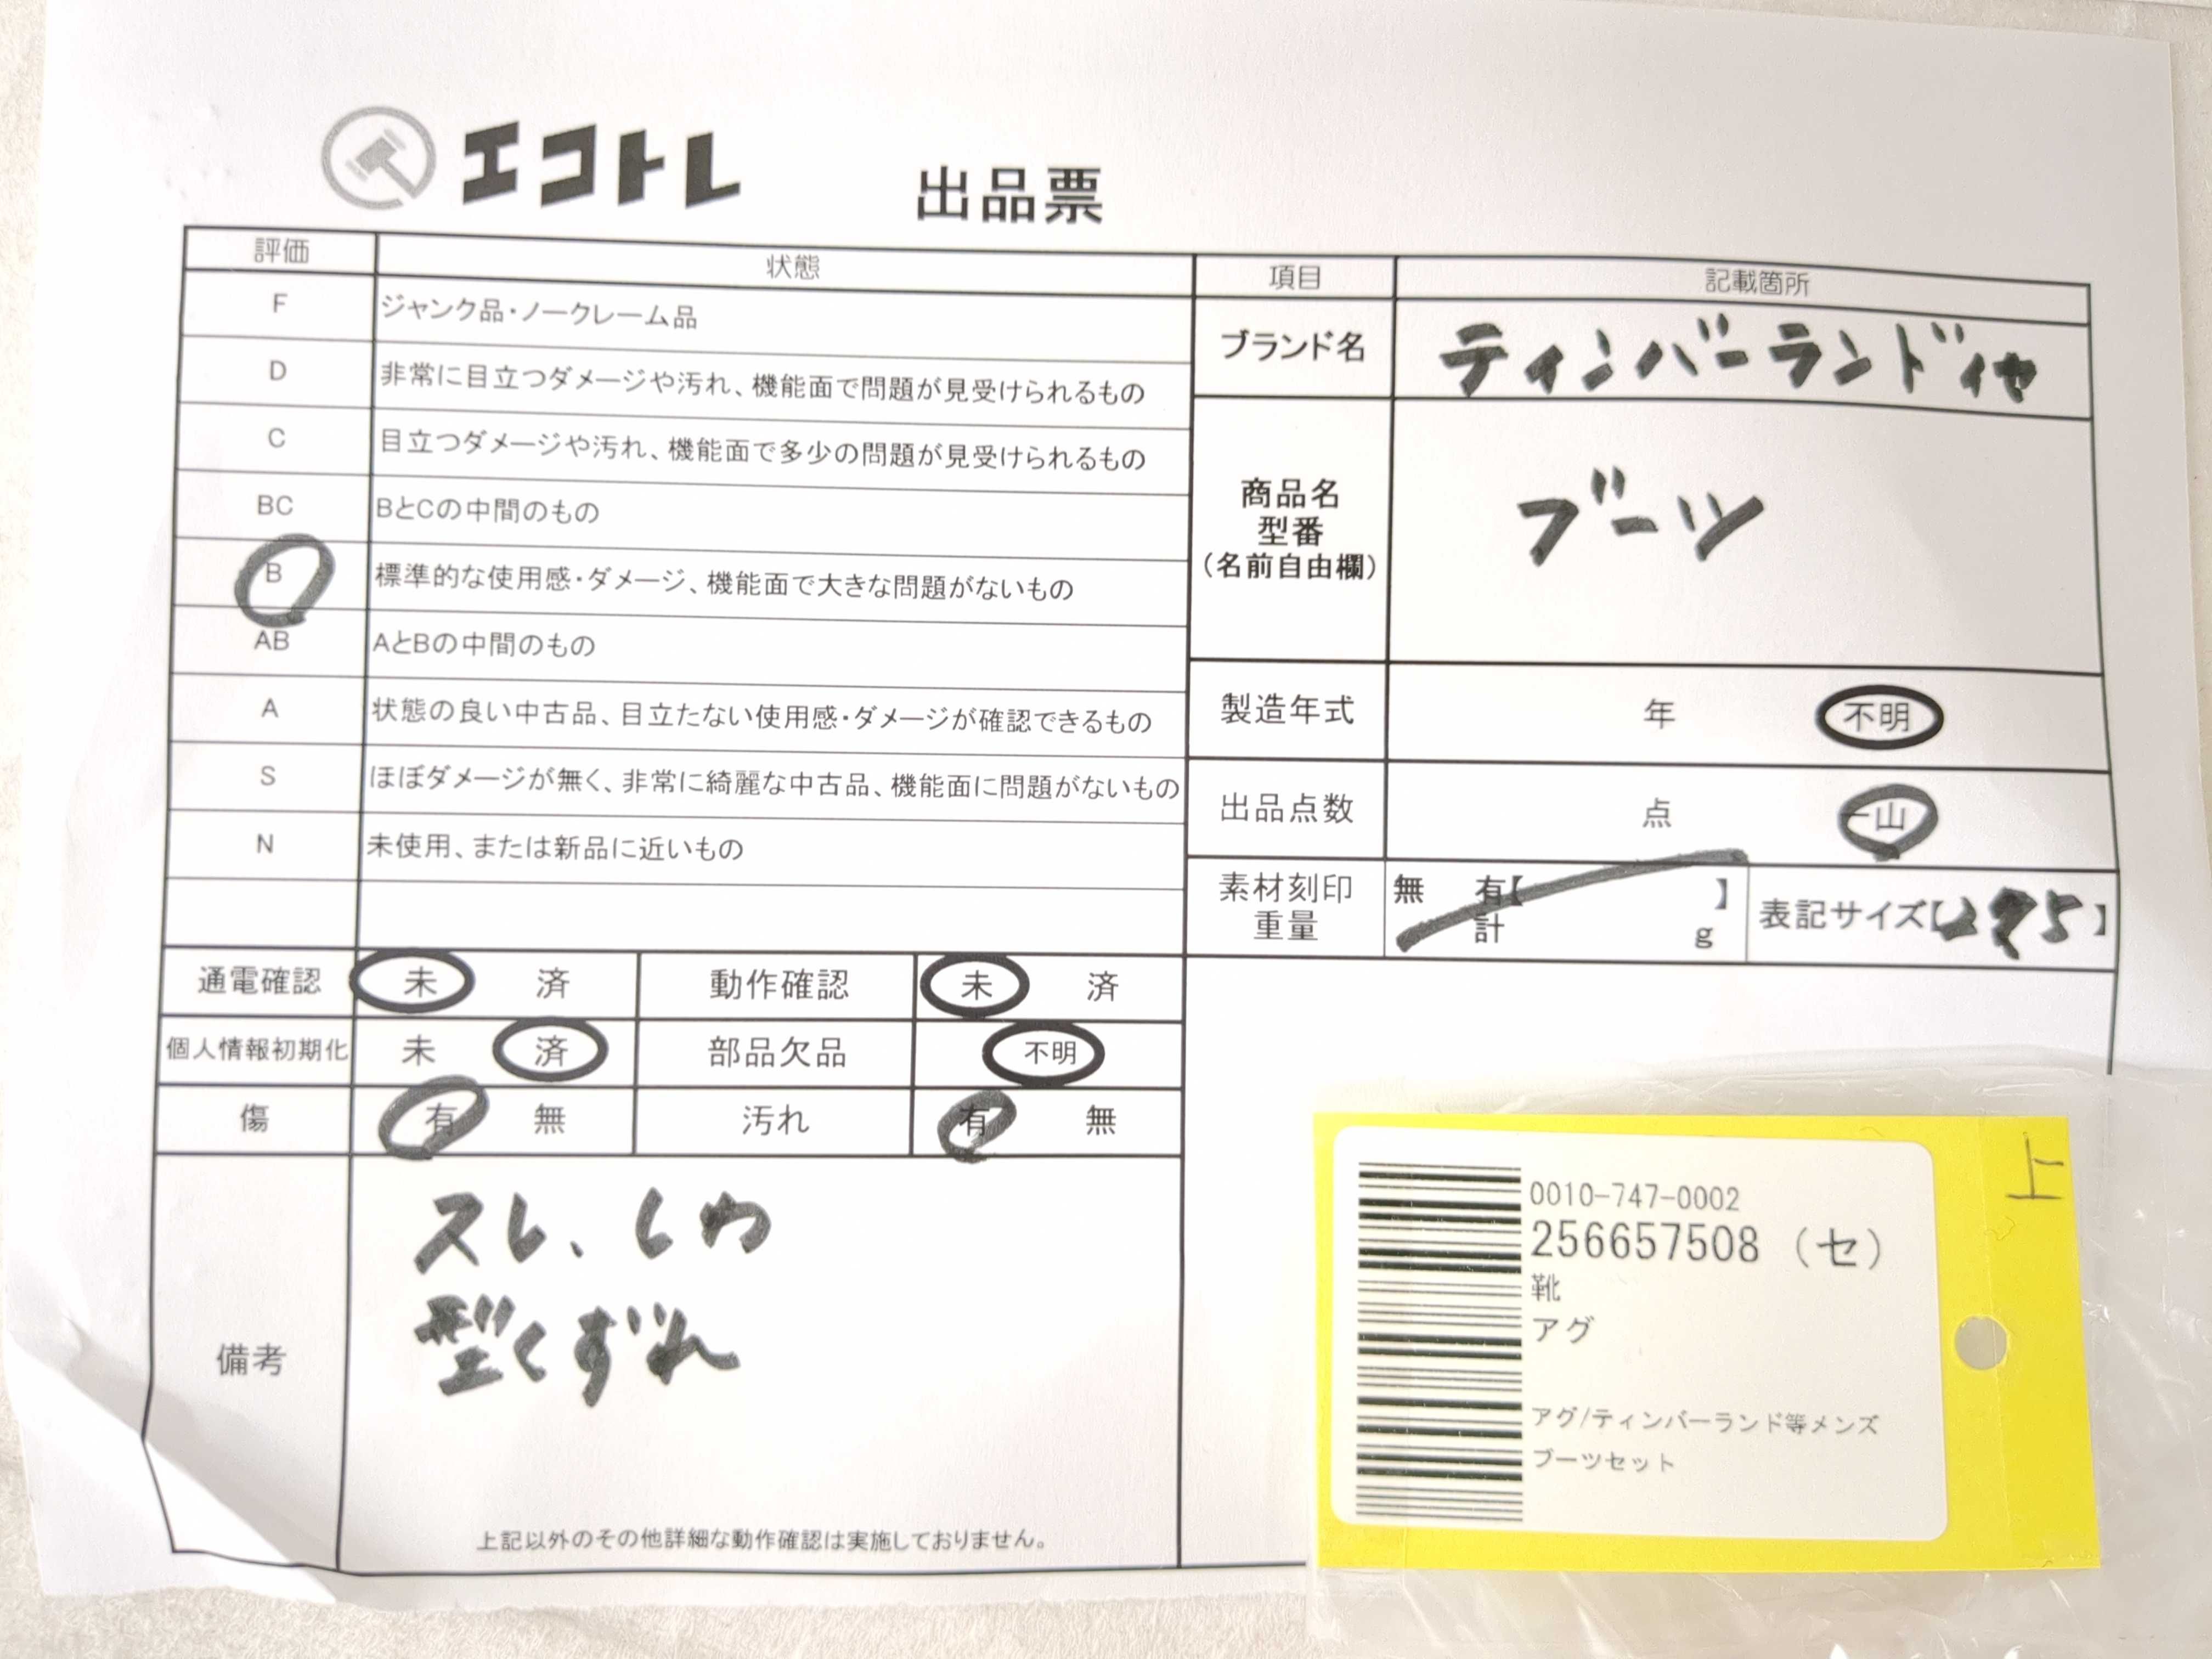 エコトレ 出品票
評価 状態
F ジャンク品・ノークレーム品
D 非常に目立つダメージや汚れ、機能面で問題が見受けられるもの
C 目立つダメージや汚れ、機能面で多少の問題が見受けられるもの
BC BとCの中間のもの
B 標準的な使用感・ダメージ、機能面で大きな問題がないもの
AB AとBの中間のもの
A 状態の良い中古品、目立たない使用感・ダメージが確認できるもの
S ほぼダメージが無く、非常に綺麗な中古品、機能面に問題がないもの
N 未使用、または新品に近いもの
通電確認 未 済 動作確認 未 済
個人情報初期化 未 済 部品欠品 不明
傷 有 無 汚れ 有 無
備考
スレ、しわ
型くずれ
上記以外のその他詳細な動作確認は実施しておりません。
項目 記載箇所
ブランド名 ティンバーランド 他
商品名
型番
(名前自由欄)
ブーツ
製造年式 年 不明
出品点数 点 一山
素材刻印 無 有【 】
重量 計 g
表記サイズ【 】
上
0010-747-0002
256657508 (セ)
靴
アグ
アグ/ティンバーランド等メンズ
ブーツセット